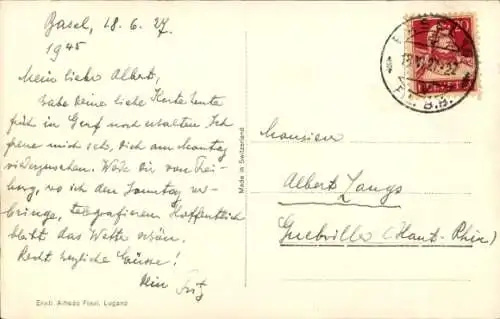 Basel, 18.6.27.
1945
Mein lieber Albert,
habe Deine liebe Karte heute
früh in Genf noch erhalten. Ich
freue mich sehr, Dich am Montag
wiederzusehen. Werde Dir von Frei-
burg, wo ich den Sonntag ver-
bringe, telegrafieren. Hoffentlich
bleibt das Wetter schön.
Recht herzliche Grüsse!
Dein Fritz
Ernst Alfredo Finzi, Lugano
Made in Switzerland
Monsieur
Albert Jungs
Guebviller (Haut-Rhin)